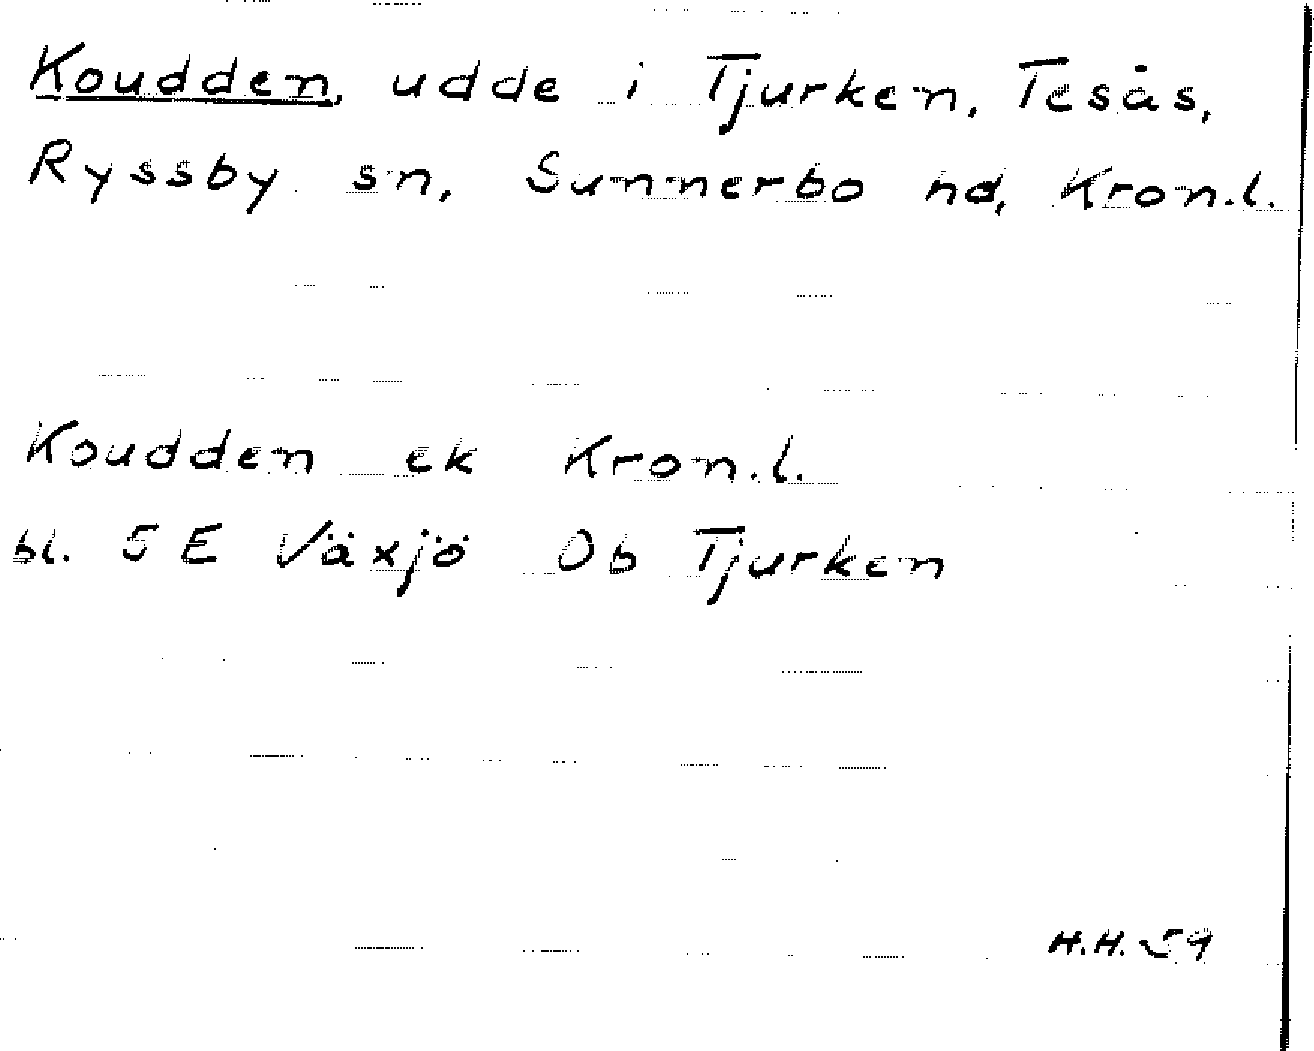 Koudden, udde i Tjurken, Tesås,
Ryssby sn, Sunnerbo hd, Kron.l.
Koudden ek Kron.l.
bl. 5 E Växjö Ob Tjurken
H.H. 59